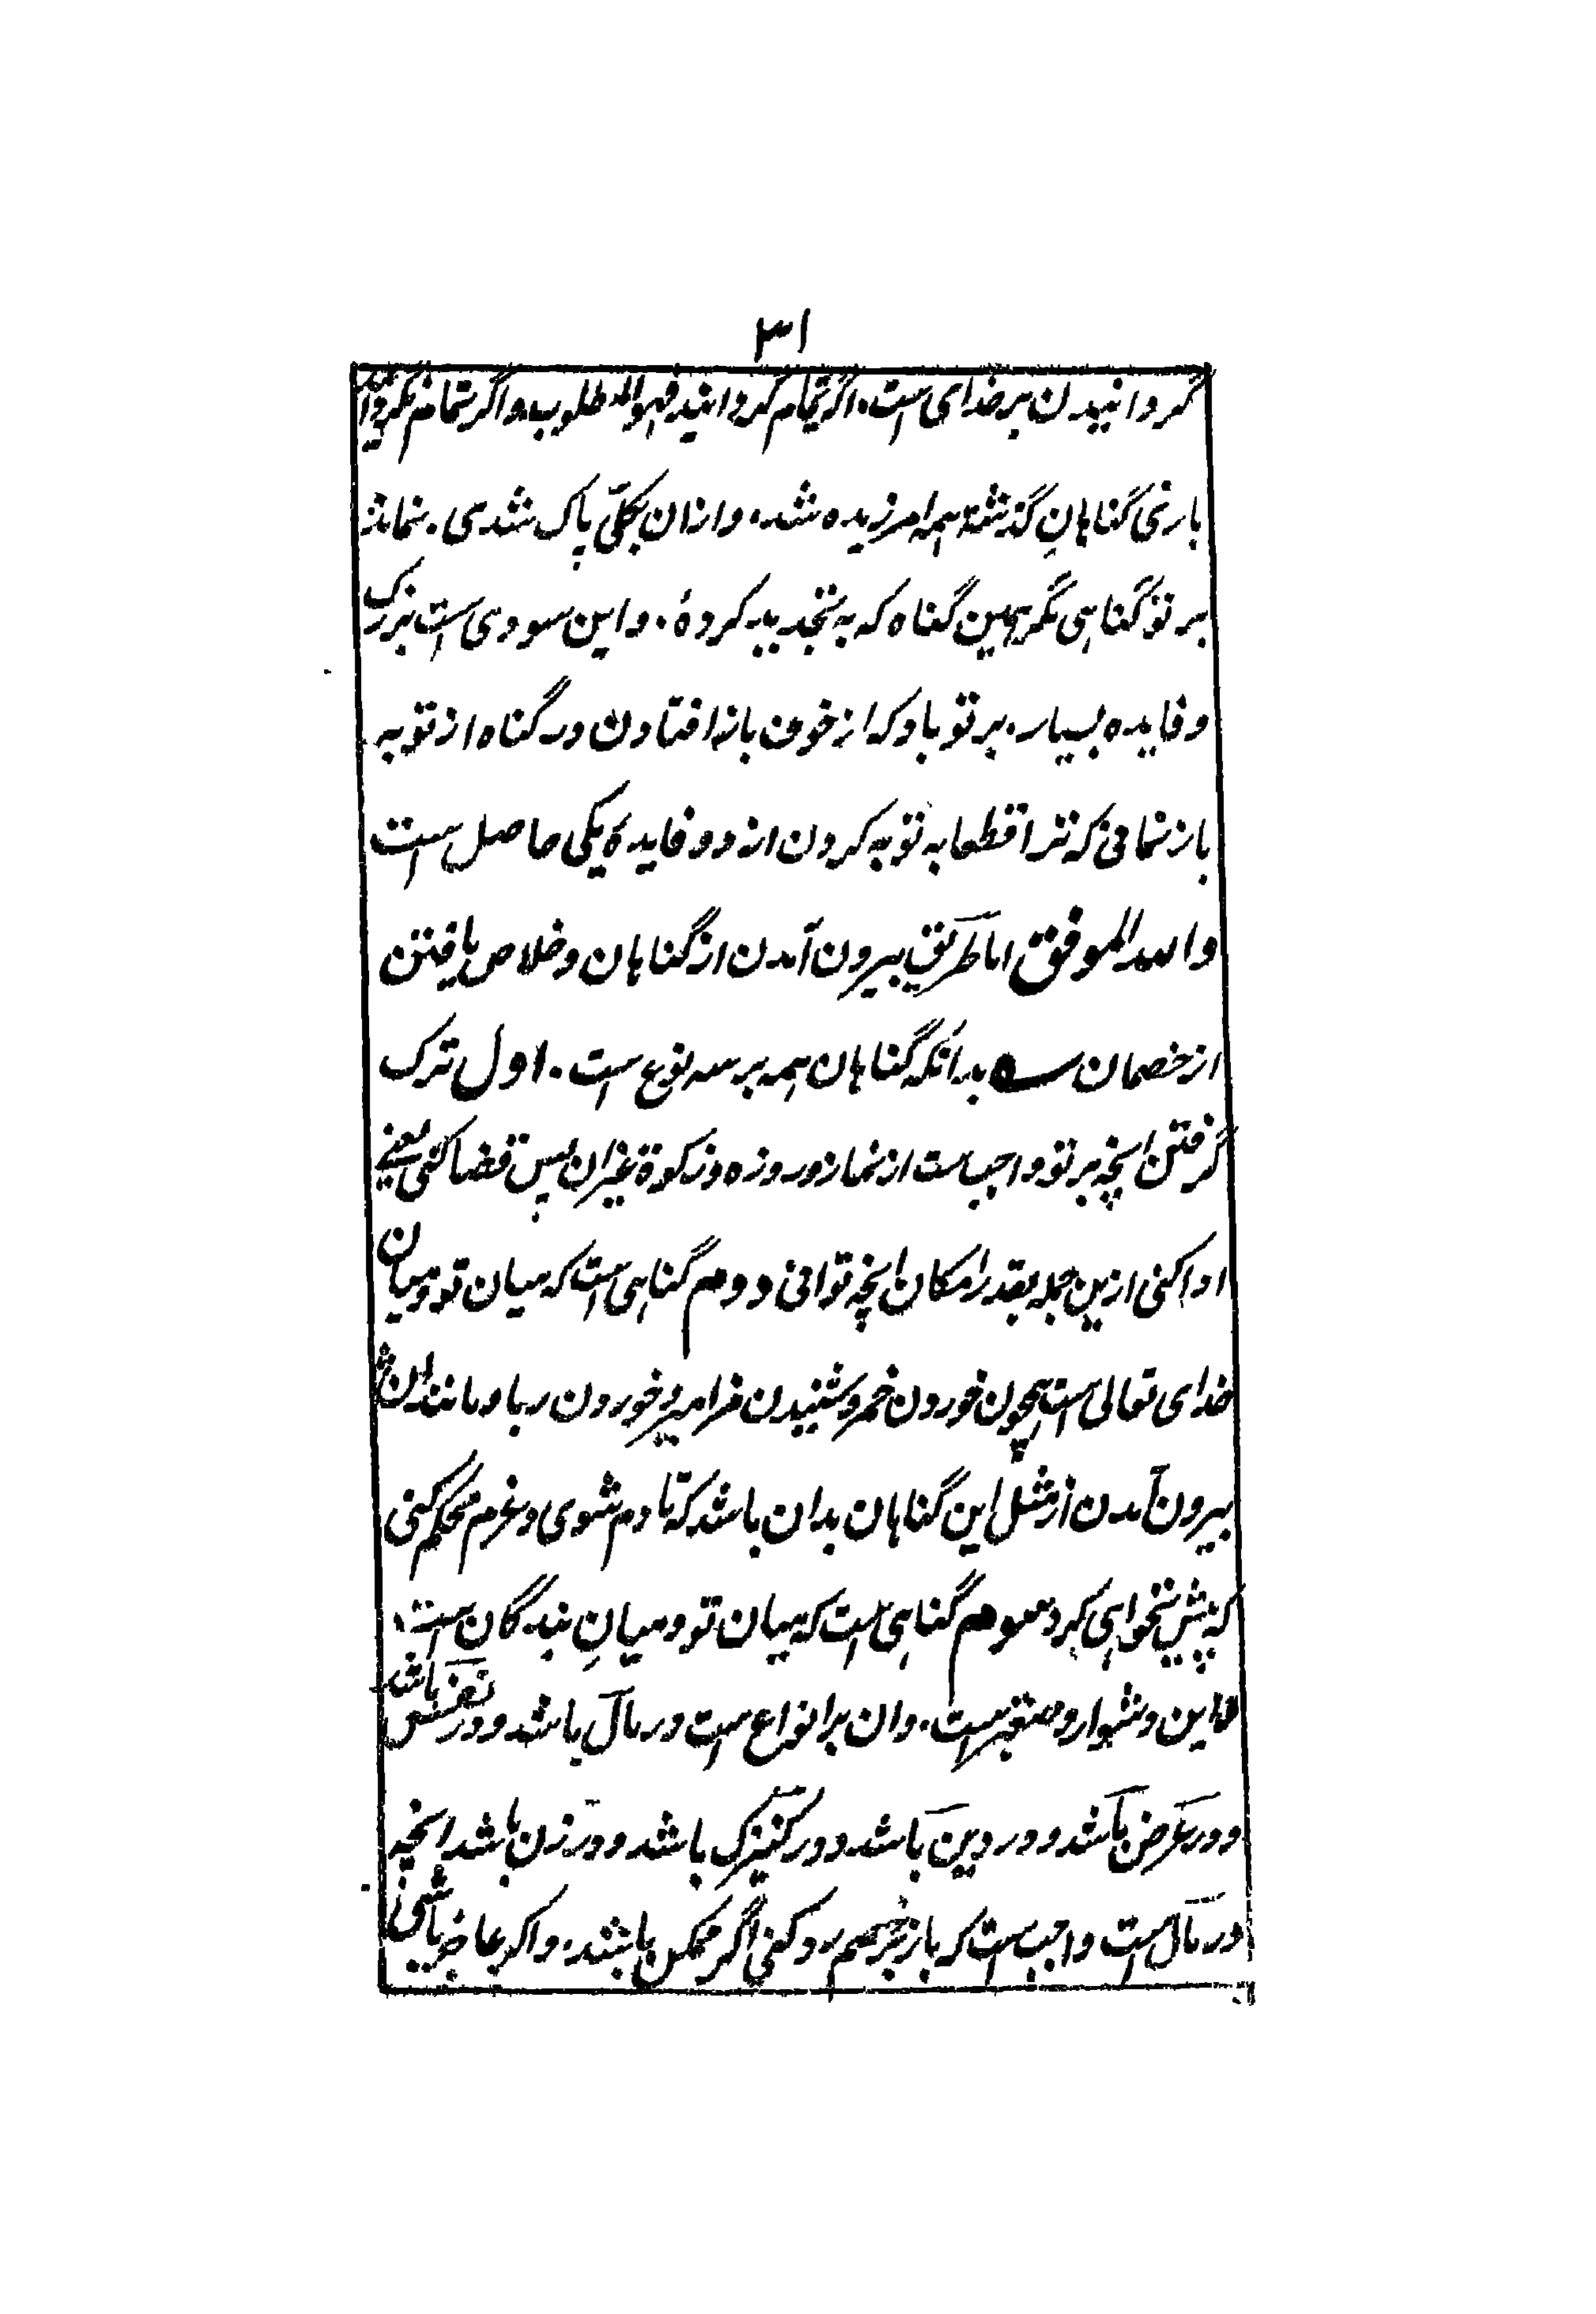 ۳۱
گردانیدن بر خدای است. اگر تمام گردانید فهو المطلوب. و اگر تمام نگرداند
باری گناهانِ گذشته همه امرزیده شد. و ازان بکلّی پاک شدی. نماند
بر تو گناهی مگر همین گناه که به تجدید کردهٔ. و این سودی است بزرگ
و فایده بسیار. بر تو باد که از خوف باز افتادن در گناه از توبه
باز نمانی که ترا قطعا به توبه کردن از دو فایده یکی حاصل است
والله الموفق اما طریق بیرون آمدن از گناهان و خلاص یافتن
از خصمان بدانکه گناهان همه بر سه نوع است. اول ترک
گرفتن انچه بر تو واجب است از نماز و روزه و زکوة و غیر ان پس قضا کنی یعنے
ادا کنی ازین جمله بقدر امکان انچه توانی دوم گناهی است که میان تو و میان
خدای تعالی است همچون خوردن خمر و شنیدن مزامیر و خوردن ربا و مانند ان
بیرون آمدن از مثل این گناهان بدان باشد که نادم شوی و عزم محکم کنی
که پیش نخواهی کرد سوم گناهی است که میان تو و میانِ بندگان است.
و این دشوار و صعبتر است. و ان بر انواع است در مال باشد و در نفس باشد
و در عرض باشد و در دین باشد و در کنیزک باشد و در زن باشد انچه
در مال است واجب است که باز بر خصم رد کنی اگر ممکن باشد. و اگر عاجز باشی از